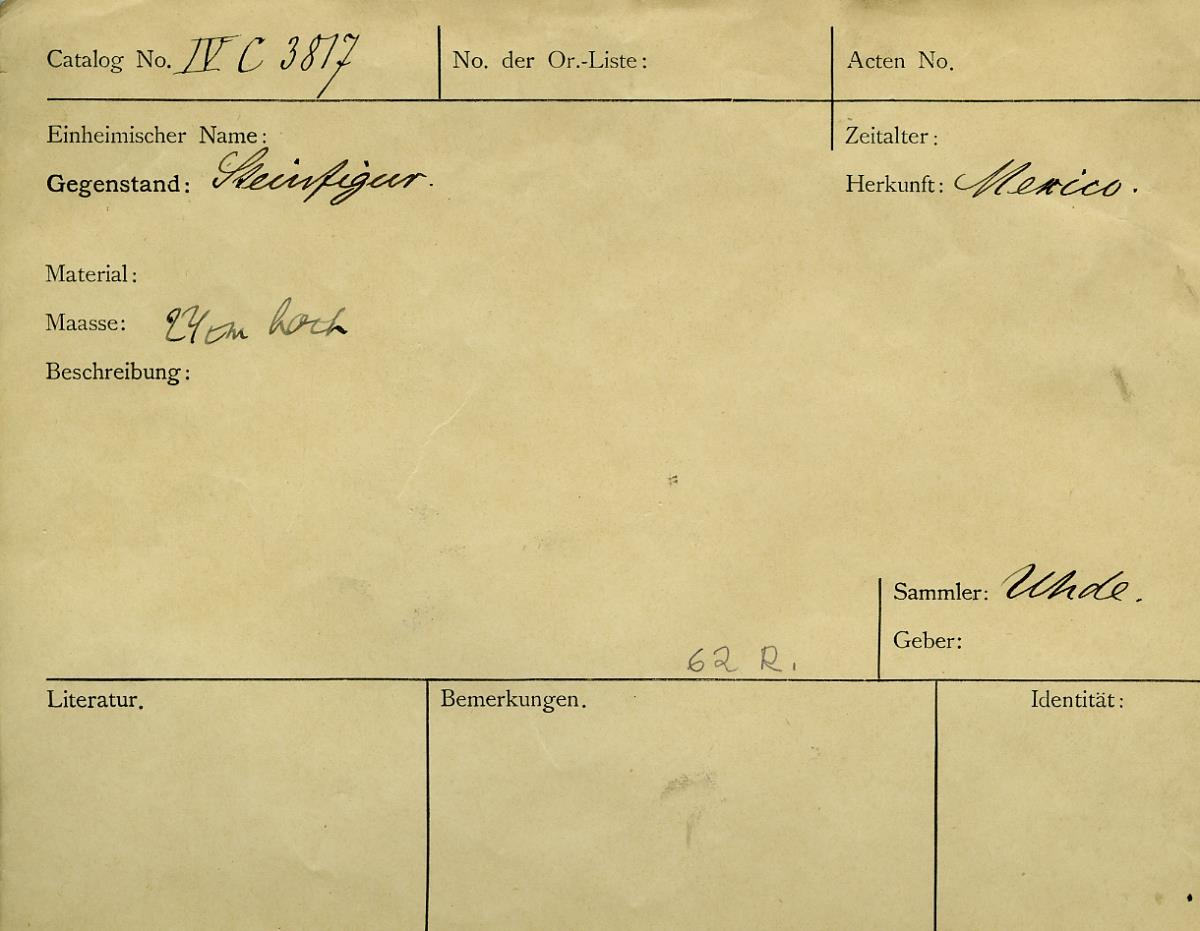 Catalog No. IV C 3817
No. der Or.-Liste:
Acten No.
Einheimischer Name:
Zeitalter:
Gegenstand: Steinfigur.
Herkunft: Mexico.
Material:
Maasse: 24 cm hoch
Beschreibung:
Sammler: Uhde.
Geber:
62 R.
Literatur.
Bemerkungen.
Identität: